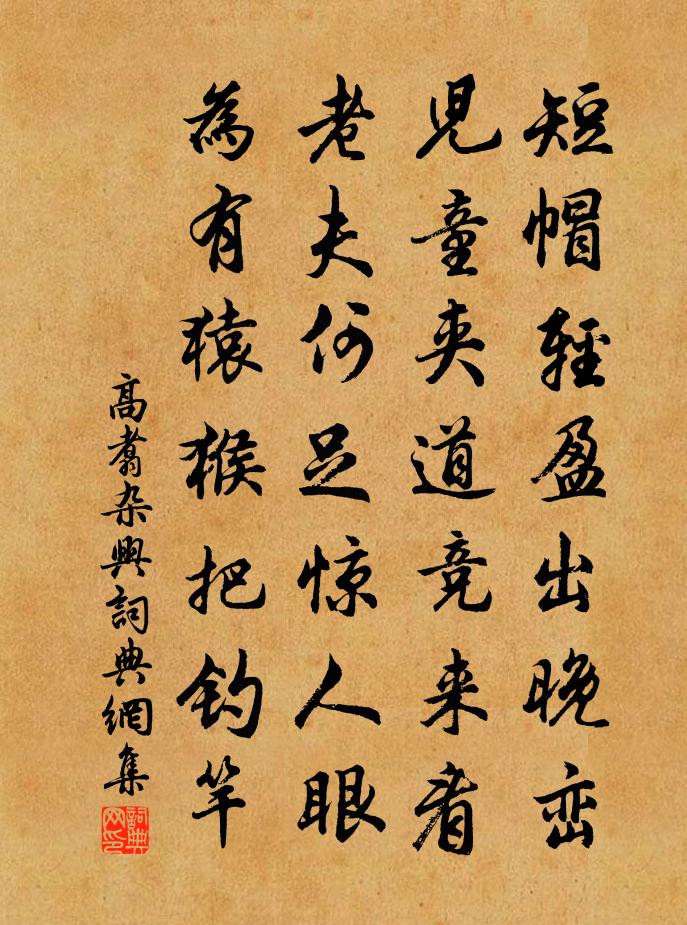 短帽輕盈出晚峦
児童夹道竞来看
老夫何足惊人眼
為有猿猴把钓竿
高翥杂興詞典網集
詞典网印